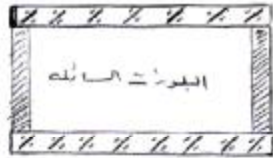 البلورات السائلة